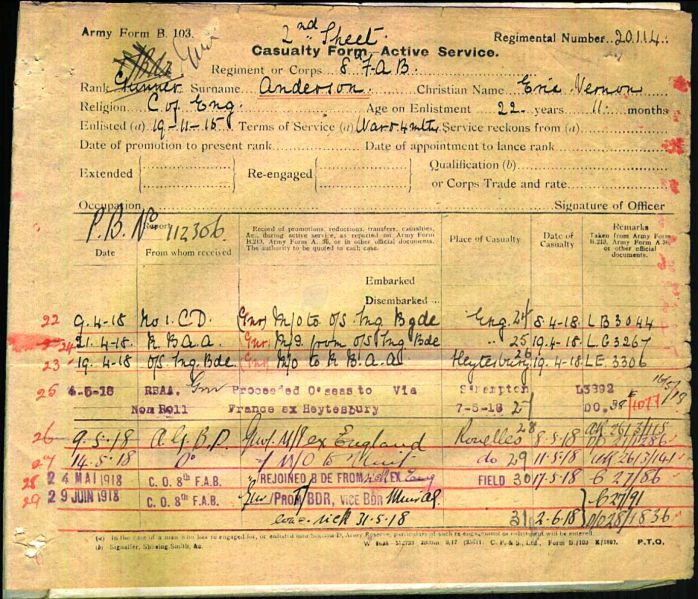 Army Form B. 103.
2nd Sheet.
Regimental Number 20114
Casualty Form—Active Service.
Regiment or Corps 8 F A B.
Rank Gunner Surname Anderson Christian Name Eric Vernon
Religion C of Eng Age on Enlistment 22 years 11 months
Enlisted (a) 19-11-15 Terms of Service (a) War & 4 mths Service reckons from (a)
Date of promotion to present rank Date of appointment to lance rank
Extended Re-engaged Qualification (b)
or Corps Trade and rate
Occupation Signature of Officer
P.B. No 112306
Report
Date From whom received
Record of promotions, reductions, transfers, casualties, &c., during active service, as reported on Army Form B.213, Army Form A. 36, or in other official documents. The authority to be quoted in each case.
Place of Casualty
Date of Casualty
Remarks
Taken from Army Form B.213, Army Form A.36, or other official documents.
Embarked
Disembarked
22 9.4-18 No 1. C.D. Gnr M/O to O/S Tng Bgde Eng 24 8-4-18 LB3044
24 21.4-18 R.B.A.A. Gnr M/I from O/S Tng Bde " 25 19.4-18 LG3267
23 19.4-18 O/S Tng Bde. Gnr M/O to R.B.A.A. Heytesbury 26 19-4-18 LE. 3306
25 RBAA. Gnr Proceeded O'seas to Via S'hampton L3392
Nom Roll France ex Heytesbury 7-5-18 DO. 38 1077
26 9.5-18 A.G.B.D. Gnr. M/I ex England Rouelles 28 8.5-18
27 14.5-18 Do " M/O to Unit do 29 11-5-18
28 24 MAI 1918 C. O. 8th F.A.B. REJOINED BDE FROM EX FIELD 30 17-5-18 6-27/86
29 29 JUIN 1918 C. O. 8th F.A.B. Gnr PROM BDR, VICE BDR 6-27/91
sick 31-5-18 31 2-6-18
(a) In the case of a man who has re-engaged for, or enlisted into Section D, Army Reserve, particulars of such re-engagement or enlistment will be entered.
(b) Signaller, Shoeing Smith, &c.
P.T.O.